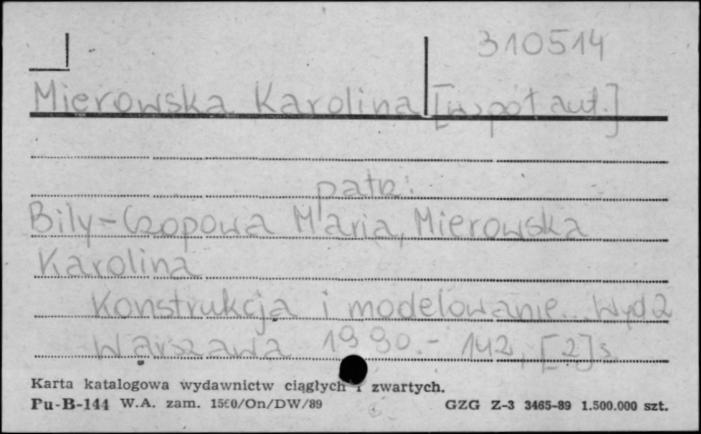 310514
Mierowska Karolina [współaut.]
patrz:
Bily-Czopowa Maria, Mierowska
Karolina
Konstrukcja i modelowanie... Wyd 2
Warszawa 1990.- 142, [2] s.
Karta katalogowa wydawnictw ciągłych i zwartych.
Pu-B-144 W.A. zam. 1560/On/DW/89 GZG Z-3 3465-89 1.500.000 szt.